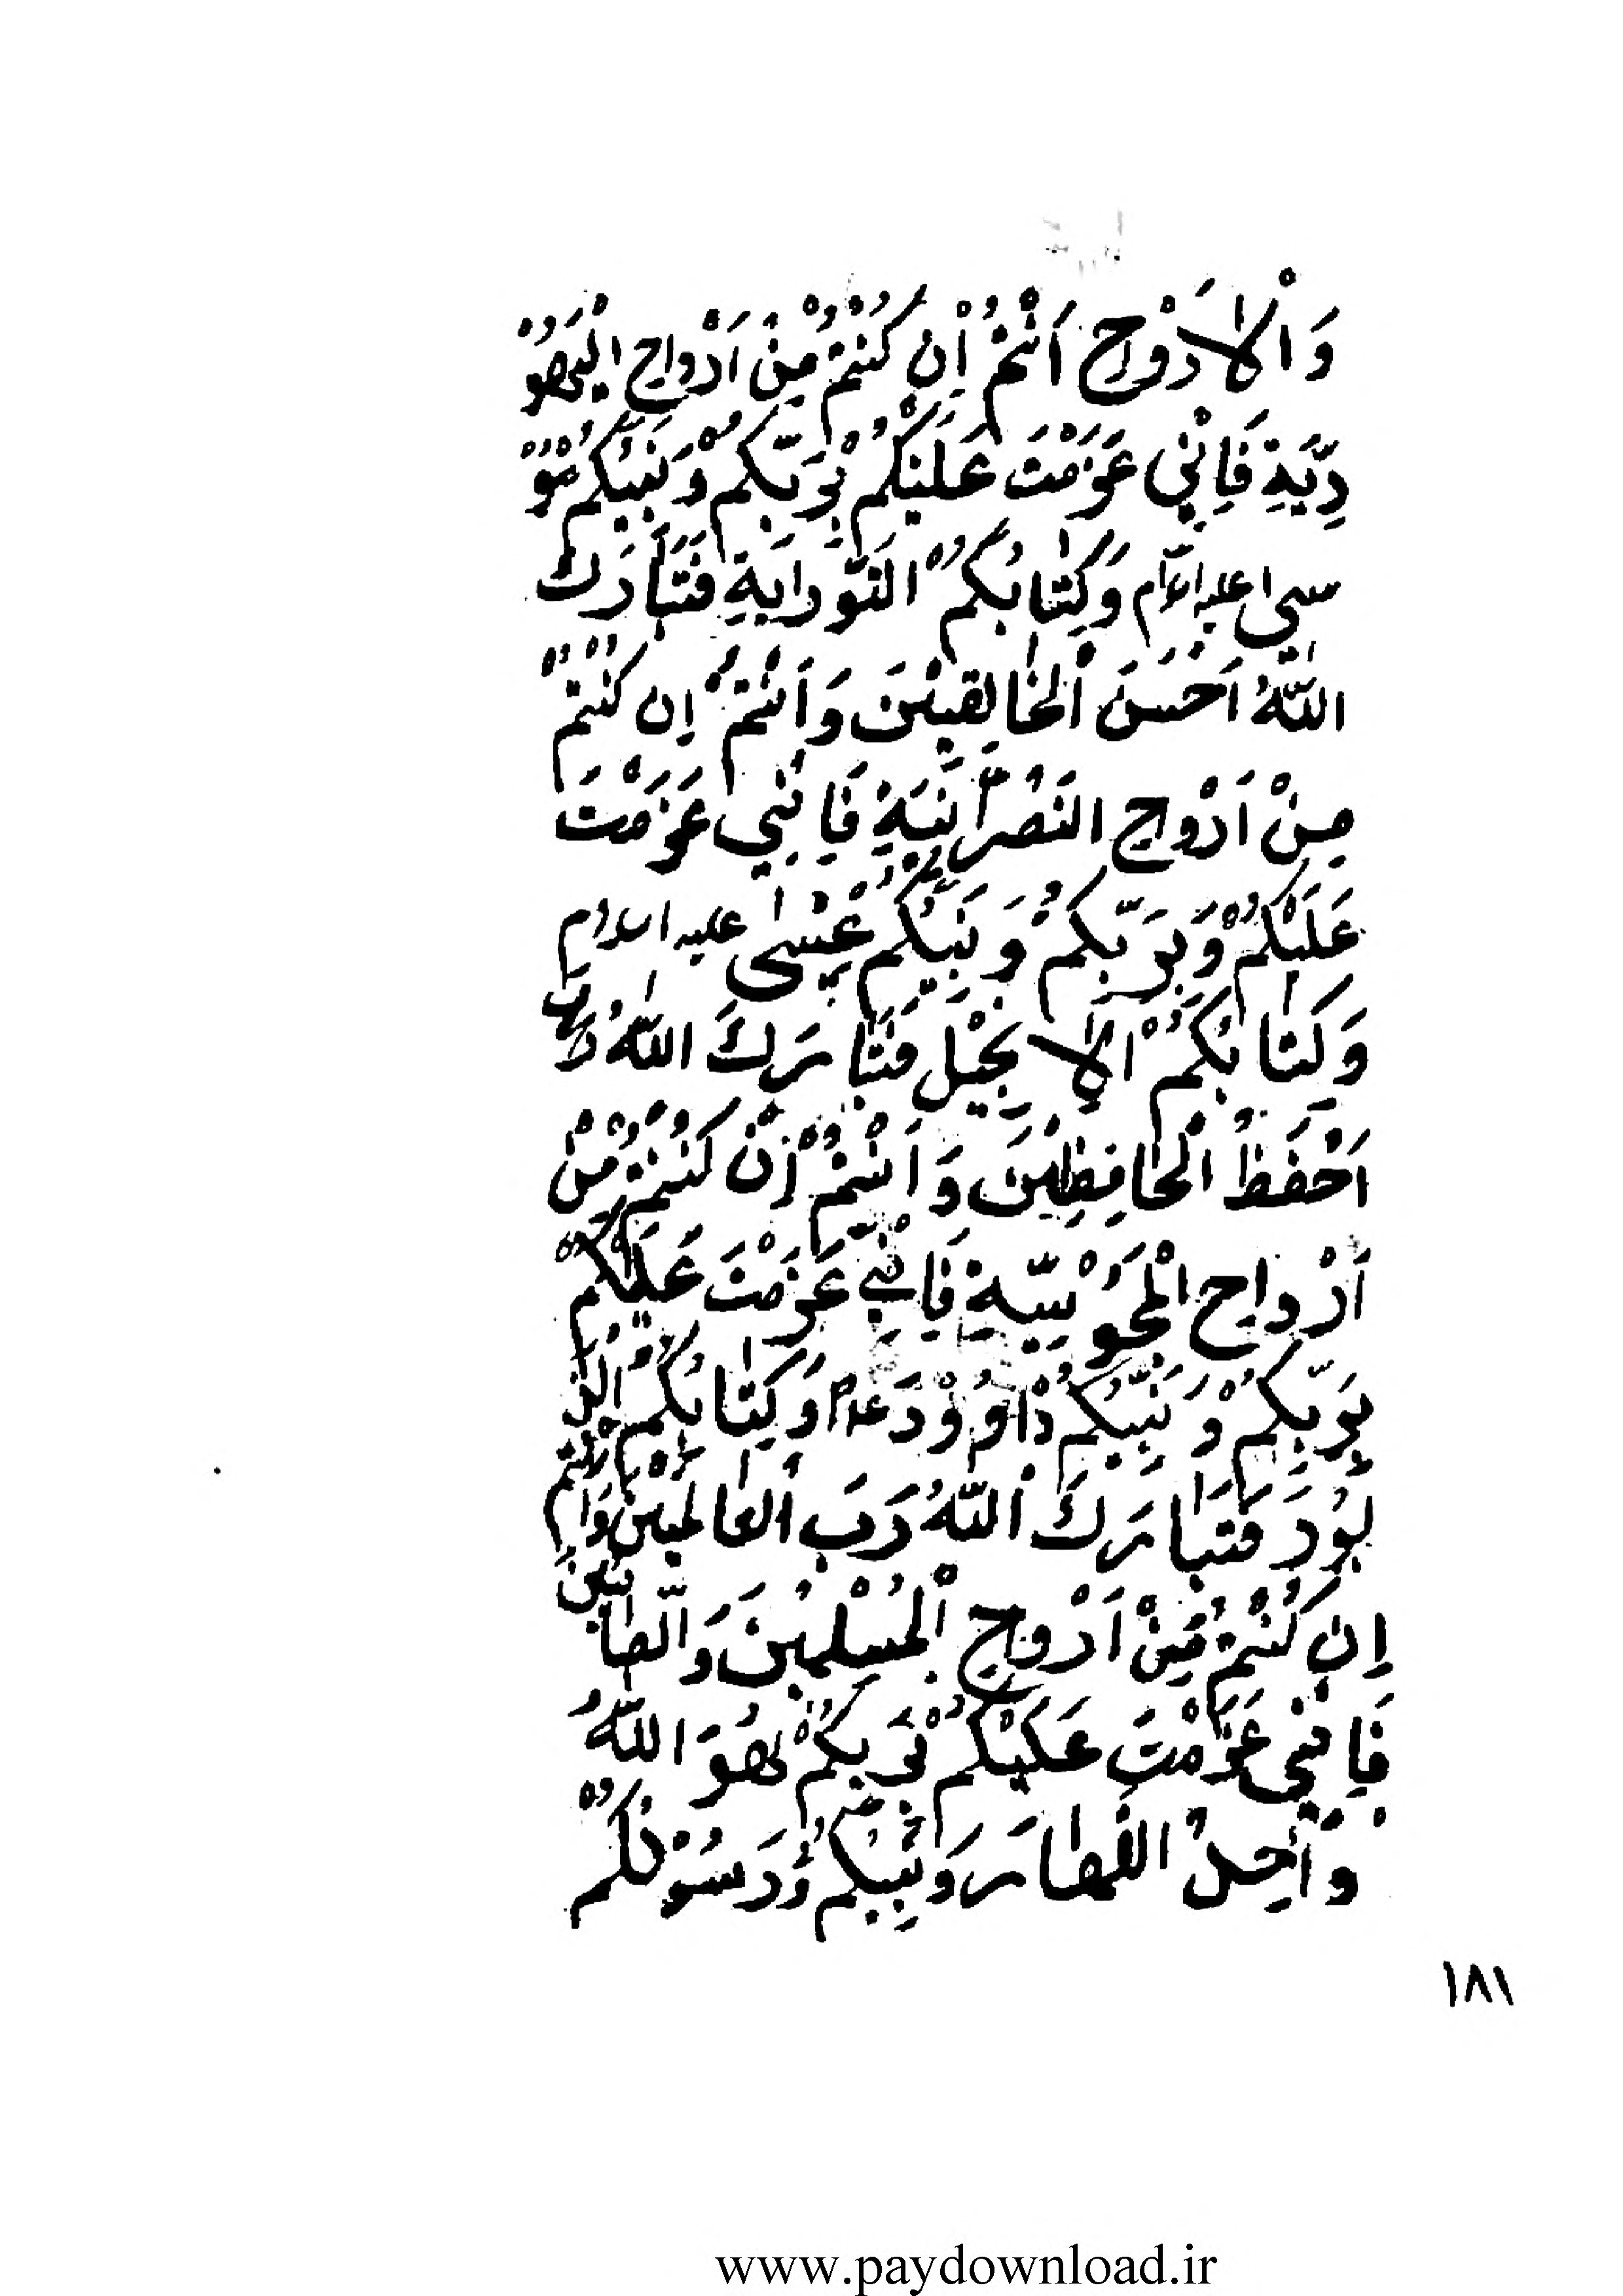 وَالْاَرْوٰاحِ اَنْتُمْ اِنْ كُنْتُمْ مِنْ اَرْوٰاحِ الْيَهُوْ
دِيَّةِ فَاِنّي عَزَمْتُ عَلَيْكُمْ بِرَبِّكُمْ وَنَبِيُّكُمْ مُوْ
سي عليه السلام وَكِتٰابُكُمْ التَّوْرايَةِ فَتَبٰارَكَ
اللّٰهُ اَحْسَنَ الْخٰالِقيْنَ وَاَنْتُمْ اِن كُنْتُمْ
مِنْ اَرْوٰاحِ النَصْرانِيَةِ فَاِنّي عَزَمْتَ
عَلَيْكُمْ وَبِرَبِّكُمْ وَنَبِيُّكُمْ عيْسٰى عليه السلام
وَكِتٰابُكُمْ اْلاِنجيْلِ فَتَبٰارَكَ اللّٰهُ رَبّ
اَحْفَظُ الْحٰافِظيْنَ وَاَنْتُمْ اِنْ كُنْتُمْ مِنْ
اَرْواحِ الْمَجُوسيَّةِ فَاِنّي عَزَمْتَ عَلَيْكُمْ
بِرَبِّكُمْ وَنَبِيُّكُمْ دٰاوُوْدَ وَكِتٰابُكُمْ الز
بُوْرَ فَتَبٰارَكَ اللّٰهُ رَبَ الْعٰالَميْنَ وَاَنْتُمْ
اِنِ كُنْتُمْ مِنْ اَرْوٰاحِ الْمُسْلِميْنَ وَالصّٰابئينَ
فَاِنّي عَزَمْتَ عَلَيْكُمْ بِرَبِكُمْ هُوَ اللّٰهُ
وٰاحِدُ الْقَهٰارَ وَنَبِيُكُمْ وَرَسُوْلُكُمْ
١٨١
www.paydownload.ir